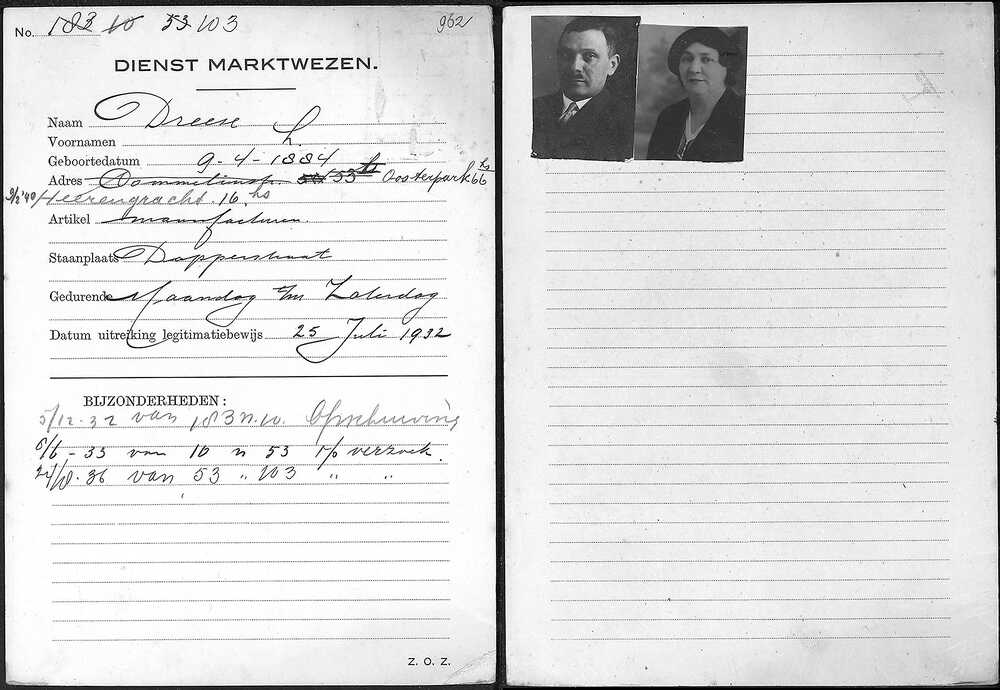 No. 183 10 53 103
962
DIENST MARKTWEZEN.
Naam Dreese
Voornamen L.
Geboortedatum 9-4-1884
Adres 53 hs Oosterpark 66 hs
9/2 '40 Heerengracht 16 hs
Artikel manufacturen.
Staanplaats Dapperstraat
Gedurende Maandag t/m Zaterdag
Datum uitreiking legitimatiebewijs 25 Juli 1932
BIJZONDERHEDEN:
5/12-32 van 183 n. 10. Opschuiving
6/6-33 van 10 n 53 o/p verzoek.
24/10-36 van 53 " 103 " "
Z. O. Z.